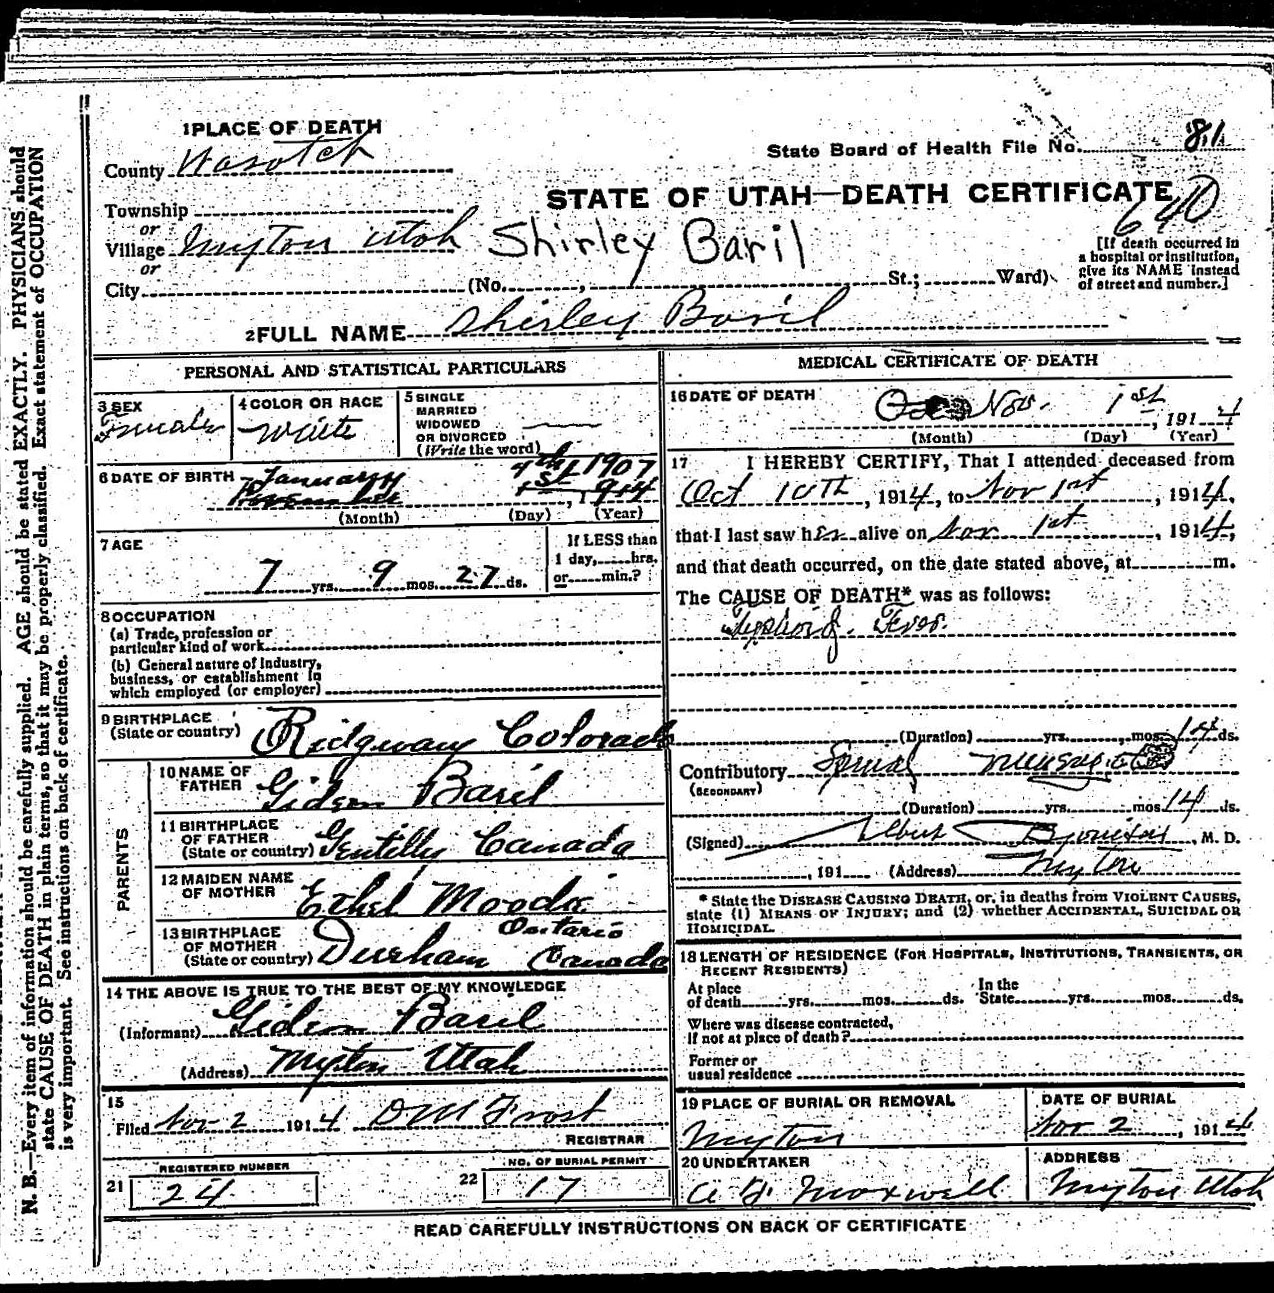 1 PLACE OF DEATH
County Wasatch
State Board of Health File No. 81
STATE OF UTAH—DEATH CERTIFICATE
640
Township
or
Village Myton Utah
Shirley Baril
or
City (No. , St.; Ward)
[If death occurred in a hospital or institution, give its NAME instead of street and number.]
2 FULL NAME Shirley Baril
PERSONAL AND STATISTICAL PARTICULARS
3 SEX Female
4 COLOR OR RACE White
5 SINGLE MARRIED WIDOWED OR DIVORCED (Write the word)
6 DATE OF BIRTH January 4th 1907
November 1st, 1914
(Month) (Day) (Year)
7 AGE
7 yrs. 9 mos. 27 ds.
If LESS than 1 day, hrs. or min.?
8 OCCUPATION
(a) Trade, profession or particular kind of work
(b) General nature of industry, business, or establishment in which employed (or employer)
9 BIRTHPLACE (State or country) Ridgway Colorado
PARENTS
10 NAME OF FATHER Gideon Baril
11 BIRTHPLACE OF FATHER (State or country) Gentilly Canada
12 MAIDEN NAME OF MOTHER Ethel Moodie
13 BIRTHPLACE OF MOTHER (State or country) Durham Ontario Canada
14 THE ABOVE IS TRUE TO THE BEST OF MY KNOWLEDGE
(Informant) Gideon Baril
(Address) Myton Utah
15
Filed Nov 2 1914 Frost
REGISTRAR
REGISTERED NUMBER
21 24
NO. OF BURIAL PERMIT
22 17
MEDICAL CERTIFICATE OF DEATH
16 DATE OF DEATH Oct Nov. 1st, 1914
(Month) (Day) (Year)
17 I HEREBY CERTIFY, That I attended deceased from
Oct 10TH, 1914, to Nov 1st, 1914,
that I last saw her alive on Nov 1st, 1914,
and that death occurred, on the date stated above, at m.
The CAUSE OF DEATH* was as follows:
Typhoid Fever.
(Duration) yrs. mos. 14 ds.
Contributory Spinal
(SECONDARY)
(Duration) yrs. mos 14 ds.
(Signed) Albert , M. D.
, 191 (Address) Myton
* State the DISEASE CAUSING DEATH, or, in deaths from VIOLENT CAUSES, state (1) MEANS OF INJURY; and (2) whether ACCIDENTAL, SUICIDAL OR HOMICIDAL.
18 LENGTH OF RESIDENCE (FOR HOSPITALS, INSTITUTIONS, TRANSIENTS, OR RECENT RESIDENTS)
At place of death yrs. mos. ds. In the State yrs. mos. ds.
Where was disease contracted, If not at place of death?
Former or usual residence
19 PLACE OF BURIAL OR REMOVAL
Myton
DATE OF BURIAL
Nov 2, 1914
20 UNDERTAKER
Maxwell
ADDRESS
Myton Utah
READ CAREFULLY INSTRUCTIONS ON BACK OF CERTIFICATE
N. B.—Every item of information should be carefully supplied. AGE should be stated EXACTLY. PHYSICIANS should
state CAUSE OF DEATH in plain terms, so that it may be properly classified. Exact statement of OCCUPATION
is very important. See instructions on back of certificate.